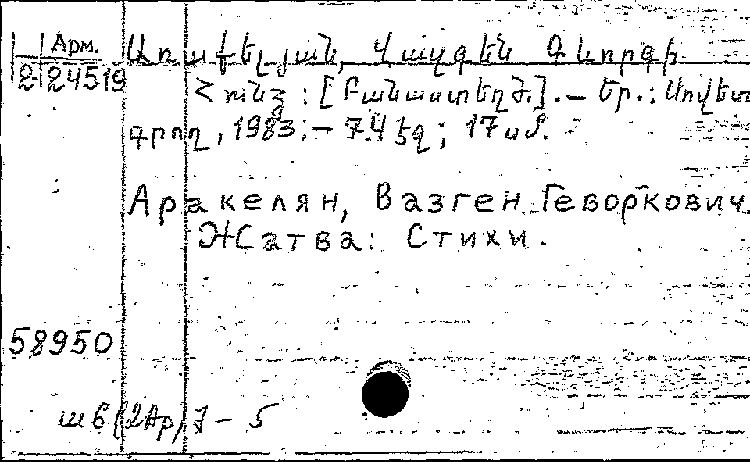 Арм.
2-24519
Առաքելյան, Վազգեն Գևորգի
Հունձ : [Բանաստեղծ.]. — Եր.: Սովետ.
գրող, 1983. — 74 էջ ; 17 սմ.
Аракелян, Вазген Геворкович.
Жатва: Стихи.
58950
ш6(2Ар)7-5